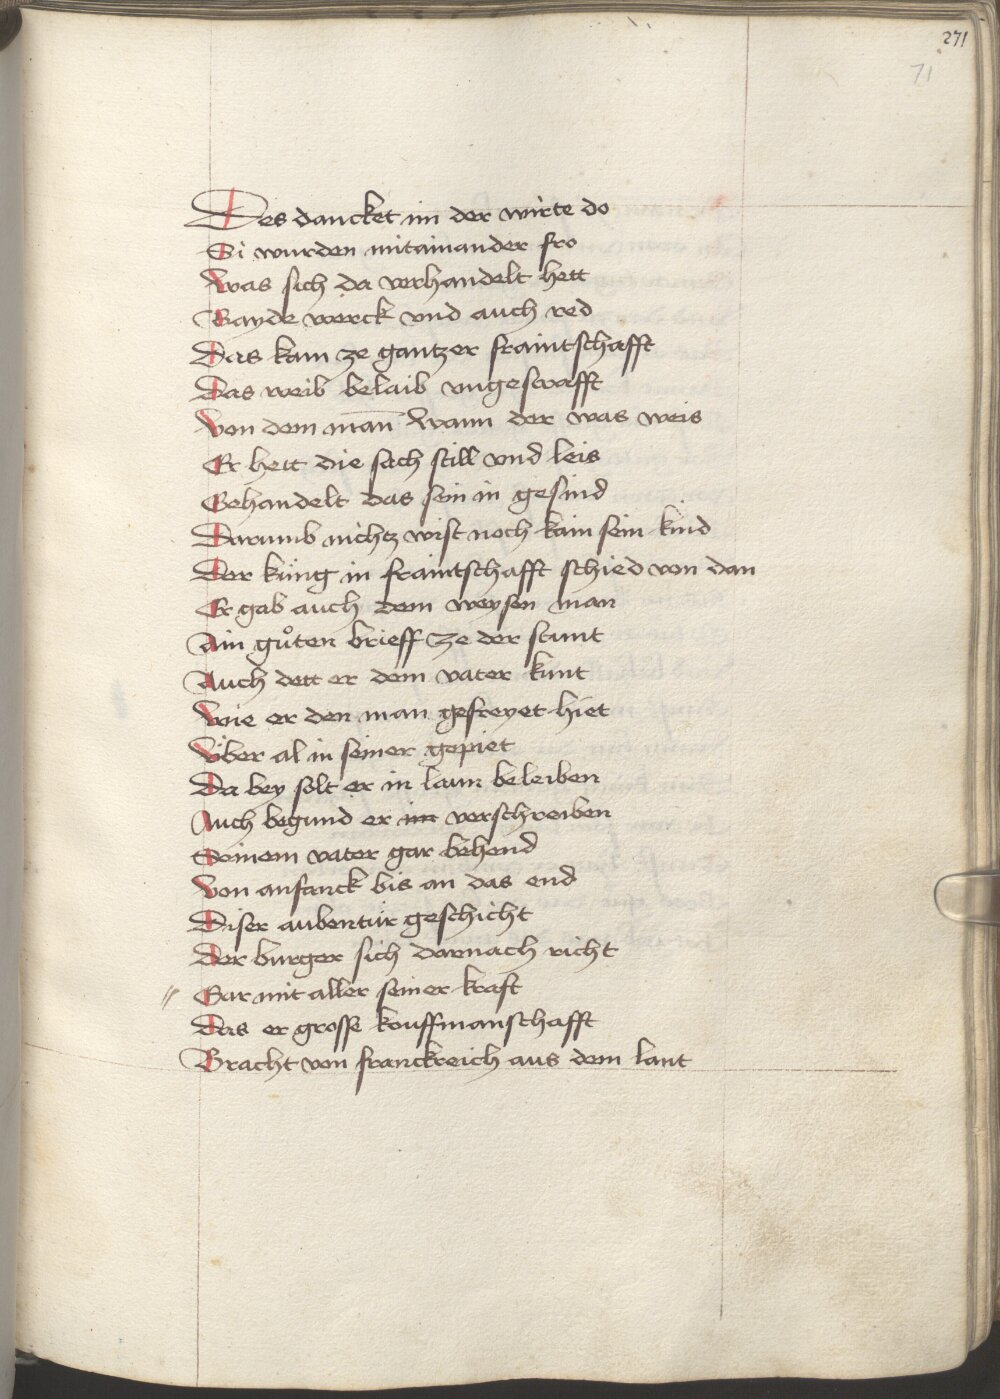 271
71
Des dancket im der wirte do
Si wurden mitainander fro
Was sich da verhandelt hett
Bayde werck vnd auch red
Das kam ze gantzer fraintschafft
Das weib belaib vngestrafft
Von dem man̄ Wann der was weis
Er hett die sach still vnd leis
Gehandelt das sein in gesind
Darumb nichtz wist noch kain sein kind
Der küng in fraintschafft schied von dan
Er gab auch dem weysen man
Ain gůten brieff ze der stunt
Auch dett er dem vater kunt
Wie er den man gefreyet hiet
Über al in seiner gepiet
Da bey solt er in laun beleiben
Auch begund er im verschreiben
Seinem vater gar behend
Von anfanck bis an das end
Diser aubentür geschicht
Der burger sich darnach richt
Gar mit aller seiner kraft
Das er grosse kouffmanschafft
Bracht von franckreich aus dem lant